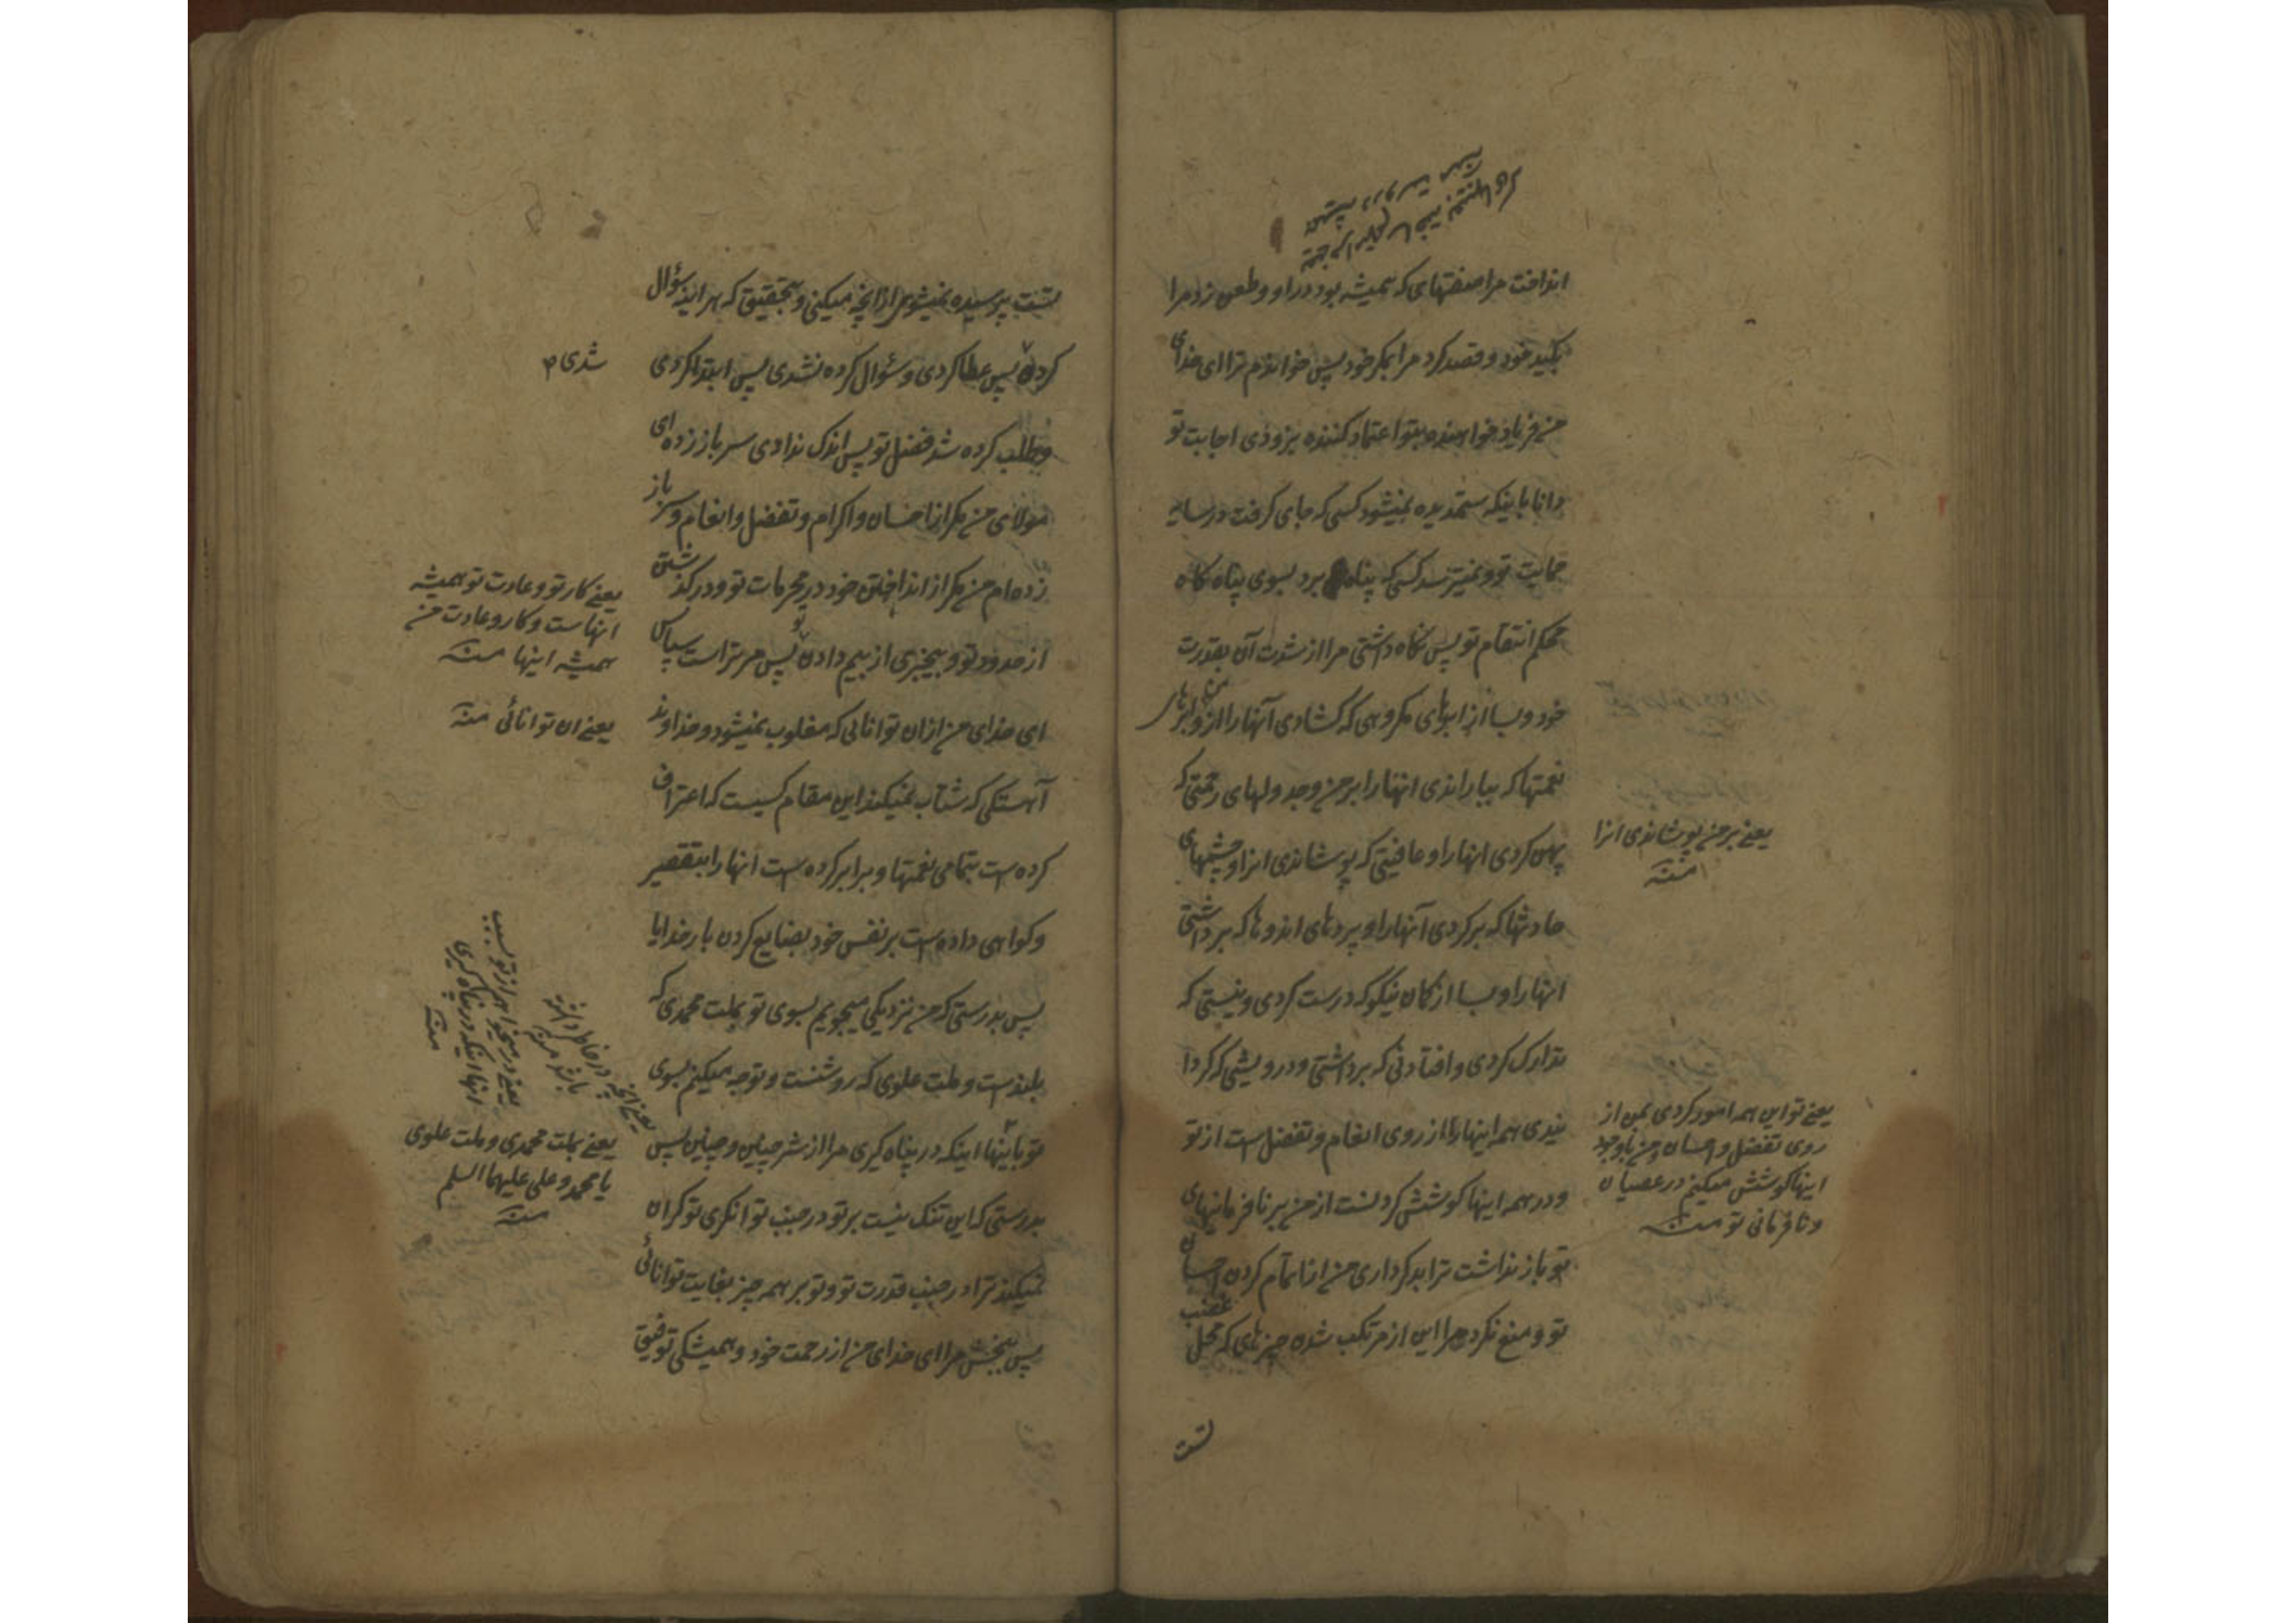 انداخت مرا صفتهای که همیشه بود در او و طعن زد مرا
بکید خود و قصد کرد مرا بمکر خود پس خواندم ترا ای خدای
من فریاد خواهنده بتو اعتماد کننده بزودی اجابت تو
دانا باینکه ستمدیده نمیشود کسی که جای گرفت در سایه
حمایت تو و نمیترسد کسی که پناه برد بسوی پناه کاه
محکم انتقام تو پس نکاه داشتی مرا از شدت آن بقدرت
خود و بسا از ابرهای مکروهی که کشادی آنها را از من و ابرهای
نعمتها که ببارانذی انها را بر من و جدولهای رحمتی که
پهن کردی انها را و عافیتی که پوشاندی انرا و چشمهای
حادثها که برکردی آنها را و پردهای اندوها که برداشتی
انها را و بسا از کمان نیکو که درست کردی و نیستی که
تدارک کردی و افتادنی که برداشتی و درویشی که کردا
نیدی همه اینها را از روی انعام و تفضل است از تو
و در همه اینها کوشش کردنست از من بر نافرمانیهای
تو باز نداشت ترا بدکرداری من از تمام کردن احسان
تو و منع نکرد مرا این از مرتکب شدن چیزهای که محل غضب
تست
یعنے بر من پوشاندی انرا
منه
یعنے تو این همه امور کردی بمن از
روی تفضل و احسان و من باوجود
اینها کوشش میکنم در عصیان
و نافرمانی تو منه
تست پرسیده نمیشوی از انچه میکنی و بتحقیق که هر اینه سؤال
کرده پس عطا کردی و سؤال کرده نشدی پس ابتدا کردی
شدی
و طلب کرده شد فضل تو پس اندک ندادی سر باز زده ای
مولای من مکر از احسان و اکرام و تفضل و انعام و سر باز
زده ام من مکر از انداختن خود در محرمات تو و در گذشتن
از حدود تو و بیخبری از بیم دادن تو پس مر تراست سپاس
ای خدای من از ان توانائی که مغلوب نمیشود و خداوند
آهستگی که شتاب نمیکند این مقام کسیست که اعتراف
کرده است بتمامی نعمتها و برابر کرده است انها را بتقصیر
و کواهی داده است بر نفس خود بضایع کردن بار خدایا
پس بدرستی که من نزدیکی میجویم بسوی تو بملت محمدی که
بلندست و ملت علوی که روشنست و توجه میکنم بسوی
تو باینها اینکه در پناه گیری مرا از شر چنین و چنین پس
بدرستی که این تنک نیست بر تو در جنب توانگری تو کران
نمیکند ترا در جنب قدرت تو و تو بر همه چیز بغایت توانائی
پس ببخش مرا ای خدای من از رحمت خود و همیشگی توفیق
یعنے کار تو و عادت تو همیشه
انهاست و کار و عادت من
همیشه اینها منه
یعنے ان توانائی منه
یعنے بملت محمدی و ملت علوی
یا محمد و علی علیهما السلم
منه